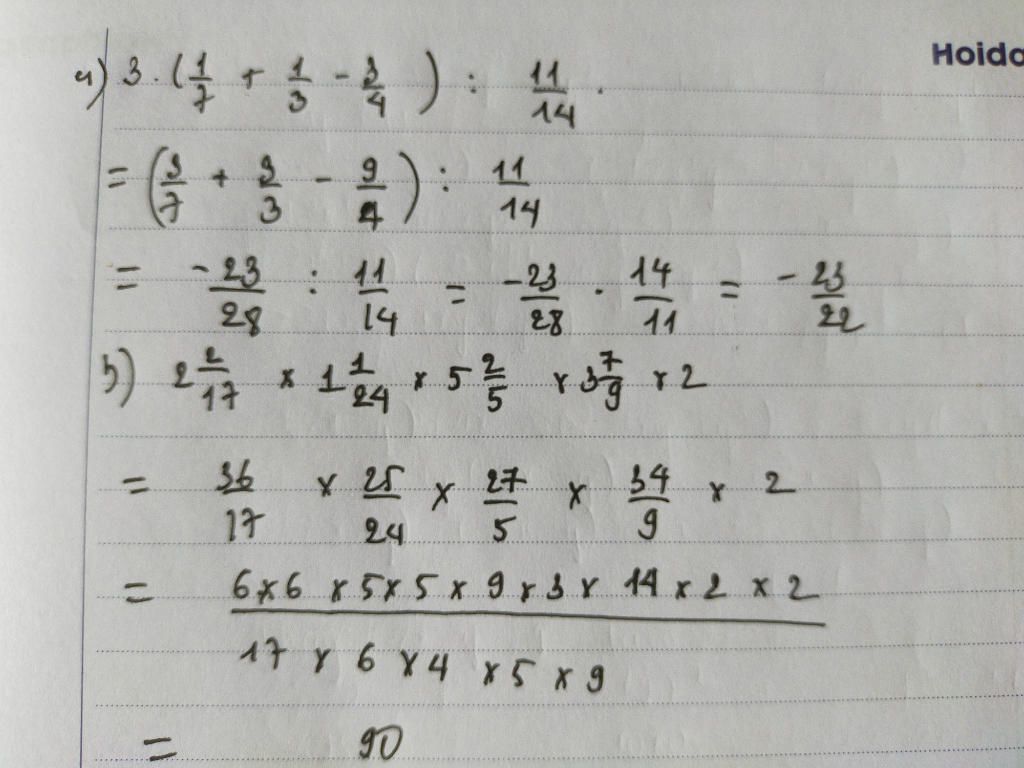 Hoido
a) 3 . (1/7 + 1/3 - 3/4) : 11/14 .
= (3/7 + 3/3 - 9/4) : 11/14
= -23/28 : 11/14 = -23/28 . 14/11 = -23/22
b) 2 2/17 x 1 1/24 x 5 2/5 x 3 7/9 x 2
= 36/17 x 25/24 x 27/5 x 34/9 x 2
= 6x6 x 5x5 x 9 x 3 x 17 x 2 x 2
17 x 6 x 4 x 5 x 9
= 90